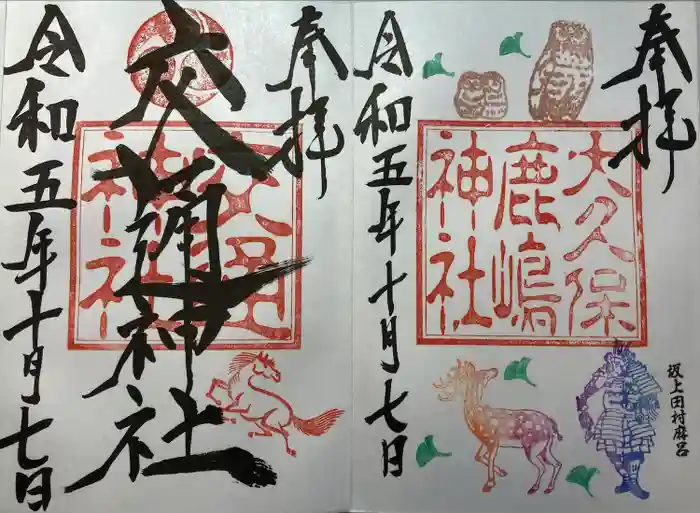 奉拝
大久保
鹿嶋
神社
坂上田村麻呂
令和五年十月七日
奉拝
交 神社
神社
令和五年十月七日